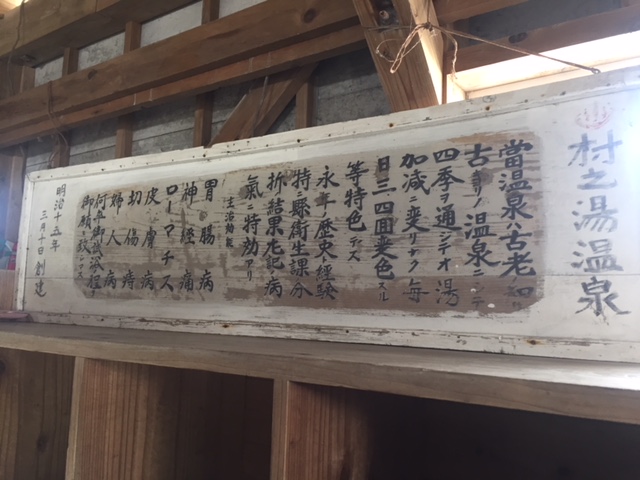 村之湯温泉
當温泉ハ古老ノ知ル
古キヨリノ温泉ニシテ
四季ヲ通シテオ湯
加減ニ変リナク毎
日三四回変色スル
等特色デス
永年ノ歴史ト経験
特ニ縣衛生課分
析結果左記ノ病
氣ニ特効アリ
主治効能
胃腸病
神経痛
ローマチス
皮膚病
切傷痔
婦人病
何卒御入浴程
御願ヒ致シマス
明治十五年
三月十日創建